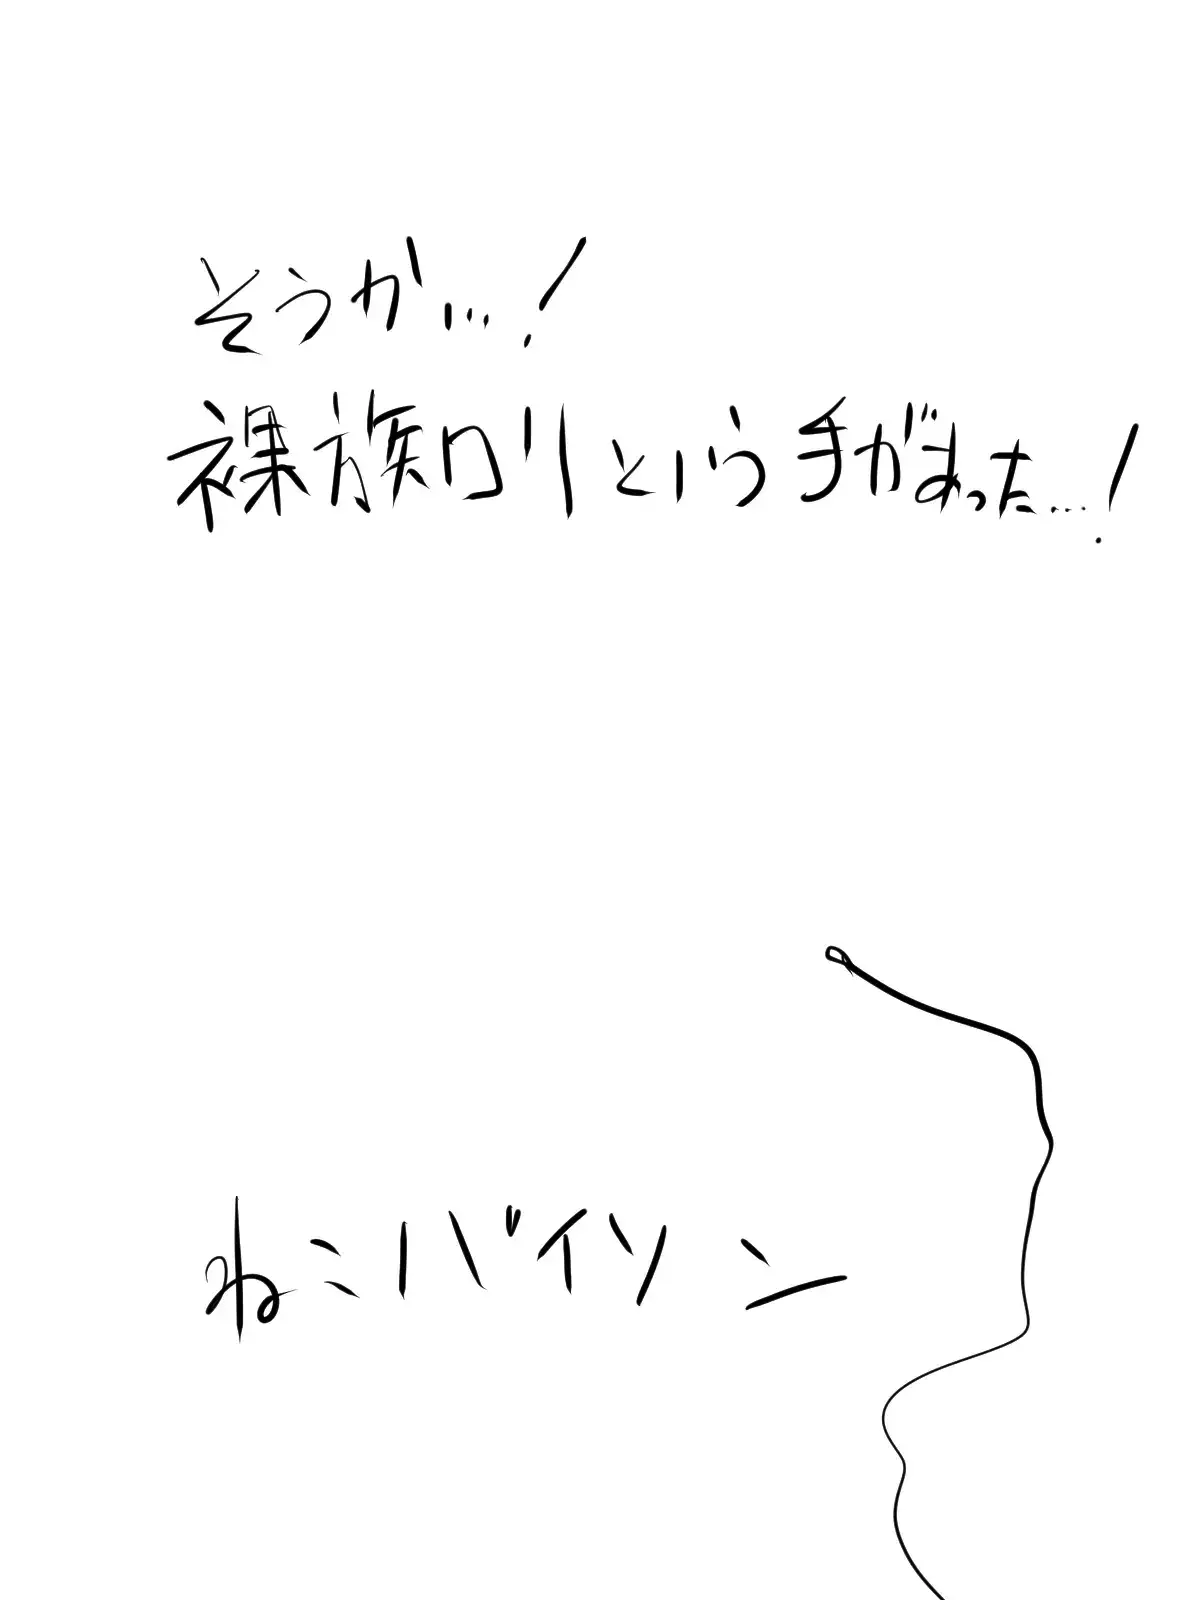 そうか…!
裸族ロリという手があった…!
ねこバイソン